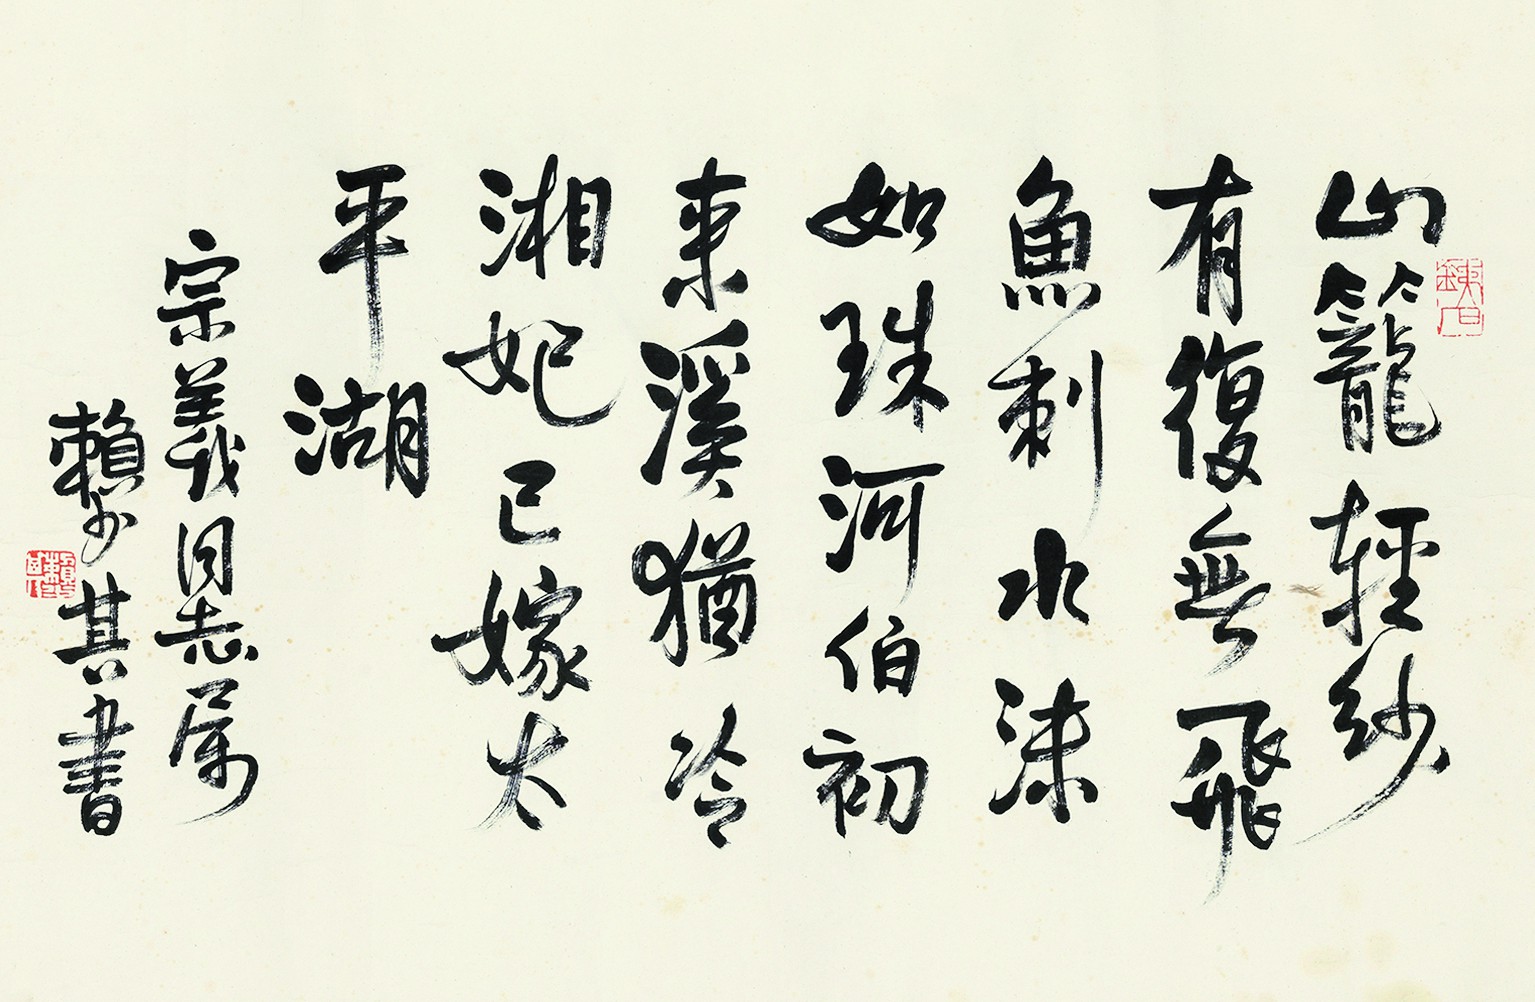 山籠輕紗
有復無飛
魚刺水沫
如珠河伯初
來溪猶冷
湘妃已嫁太
平湖
宗義同志属
賴少其書